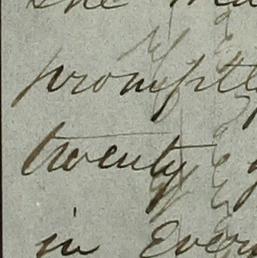 the
promptl
twenty
in Ever